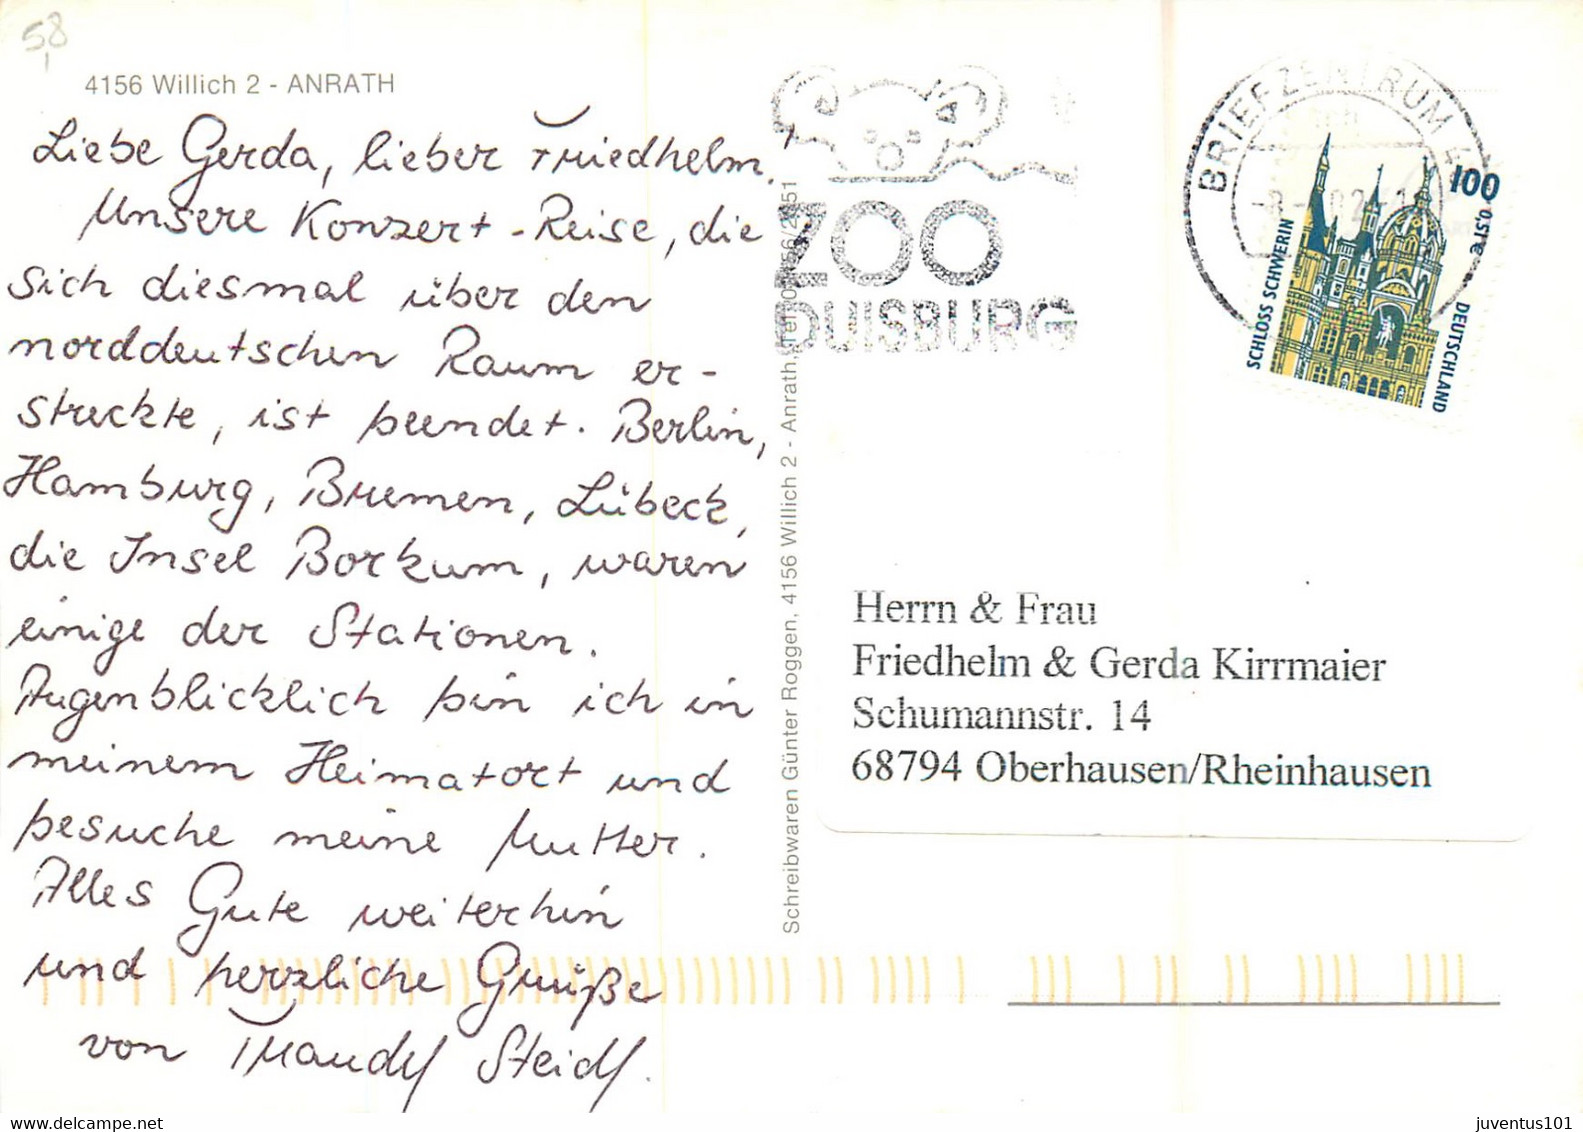 58
4156 Willich 2 - ANRATH
Liebe Gerda, lieber Friedhelm!
Unsere Konzert-Reise, die
sich diesmal über den
norddeutschen Raum er-
streckte, ist beendet. Berlin,
Hamburg, Bremen, Lübeck,
die Insel Borkum, waren
einige der Stationen.
Augenblicklich bin ich in
meinem Heimatort und
besuche meine Mutter.
Alles Gute weiterhin
und herzliche Grüße
von Steidl.
Schreibwaren Günter Roggen, 4156 Willich 2 - Anrath, Tel.
ZOO
DUISBURG
BRIEFZENTRUM
100
0,51 €
SCHLOSS SCHWERIN
DEUTSCHLAND
Herrn & Frau
Friedhelm & Gerda Kirrmaier
Schumannstr. 14
68794 Oberhausen/Rheinhausen
juventus101